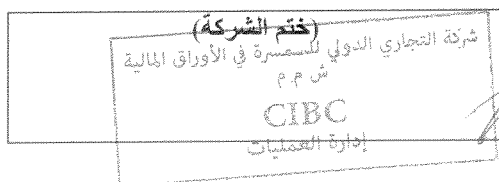 (ختم الشركة)
شركة التجاري الدولي للسمسرة في الأوراق المالية
ش م م
CIBC
إدارة العمليات